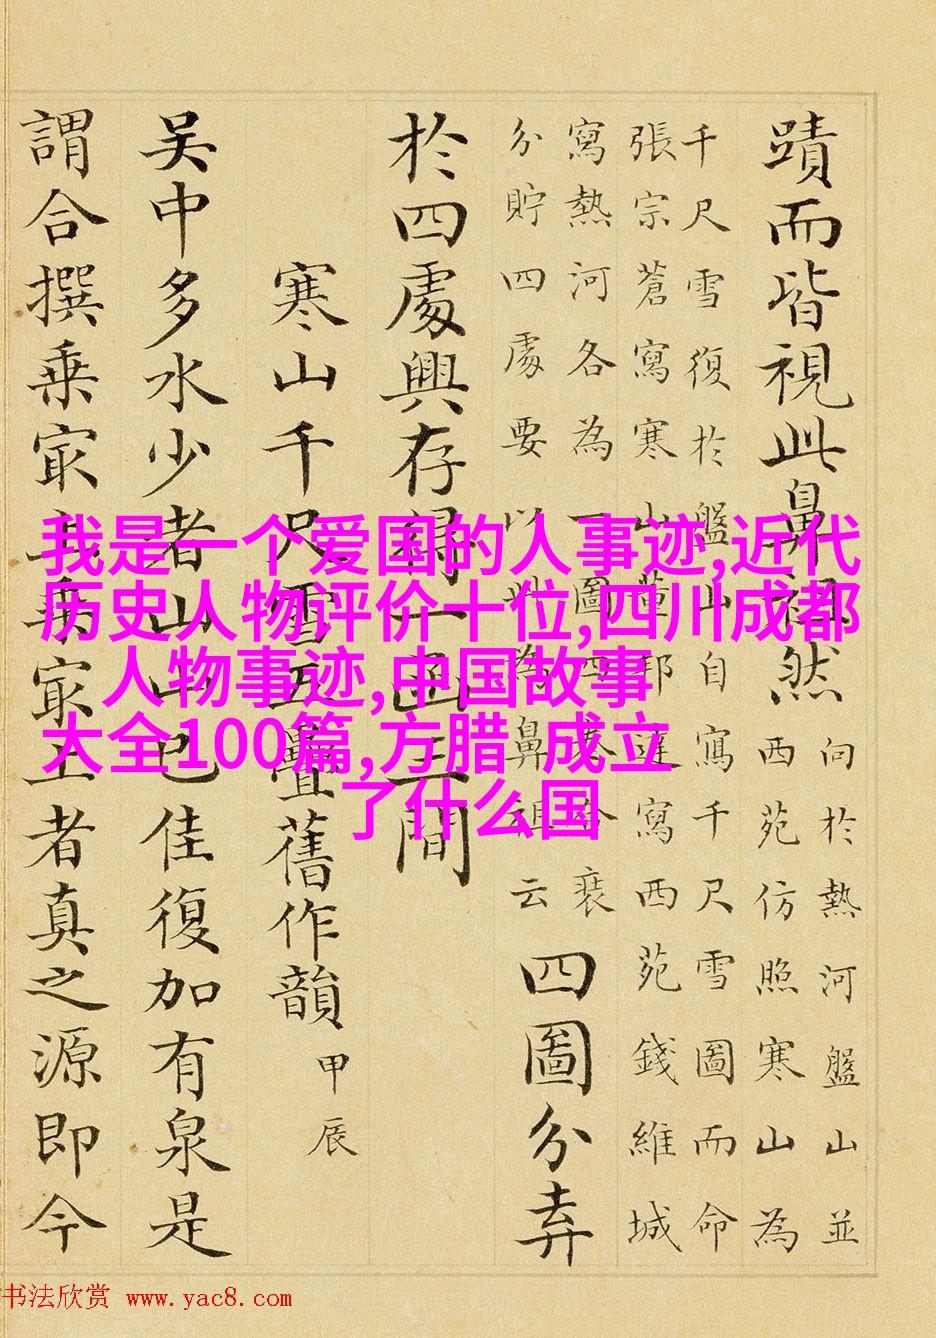 蹟而皆視此鼻祖然
向於熱河盤山並
西苑仿照寒山為
千尺雪復於盤山自寫千尺雪圖而命
張宗蒼寫寒山董邦達寫西苑錢維城
寫熱河各為一圖四卷合裝
分貯四處要以此為鼻祖云
四圖分弆
於四處興存得一函三間
寒山千尺雪五疊舊作韻 甲辰
吳中多水少者山山已佳復加有泉是
謂合撰乗冣乗冣上者真之源即今
我是一个爱国的人事迹,近代
历史人物评价十位,四川成都
人物事迹,中国故事
大全100篇,方腊 成立
了什么国
书法欣赏 www.yac8.com